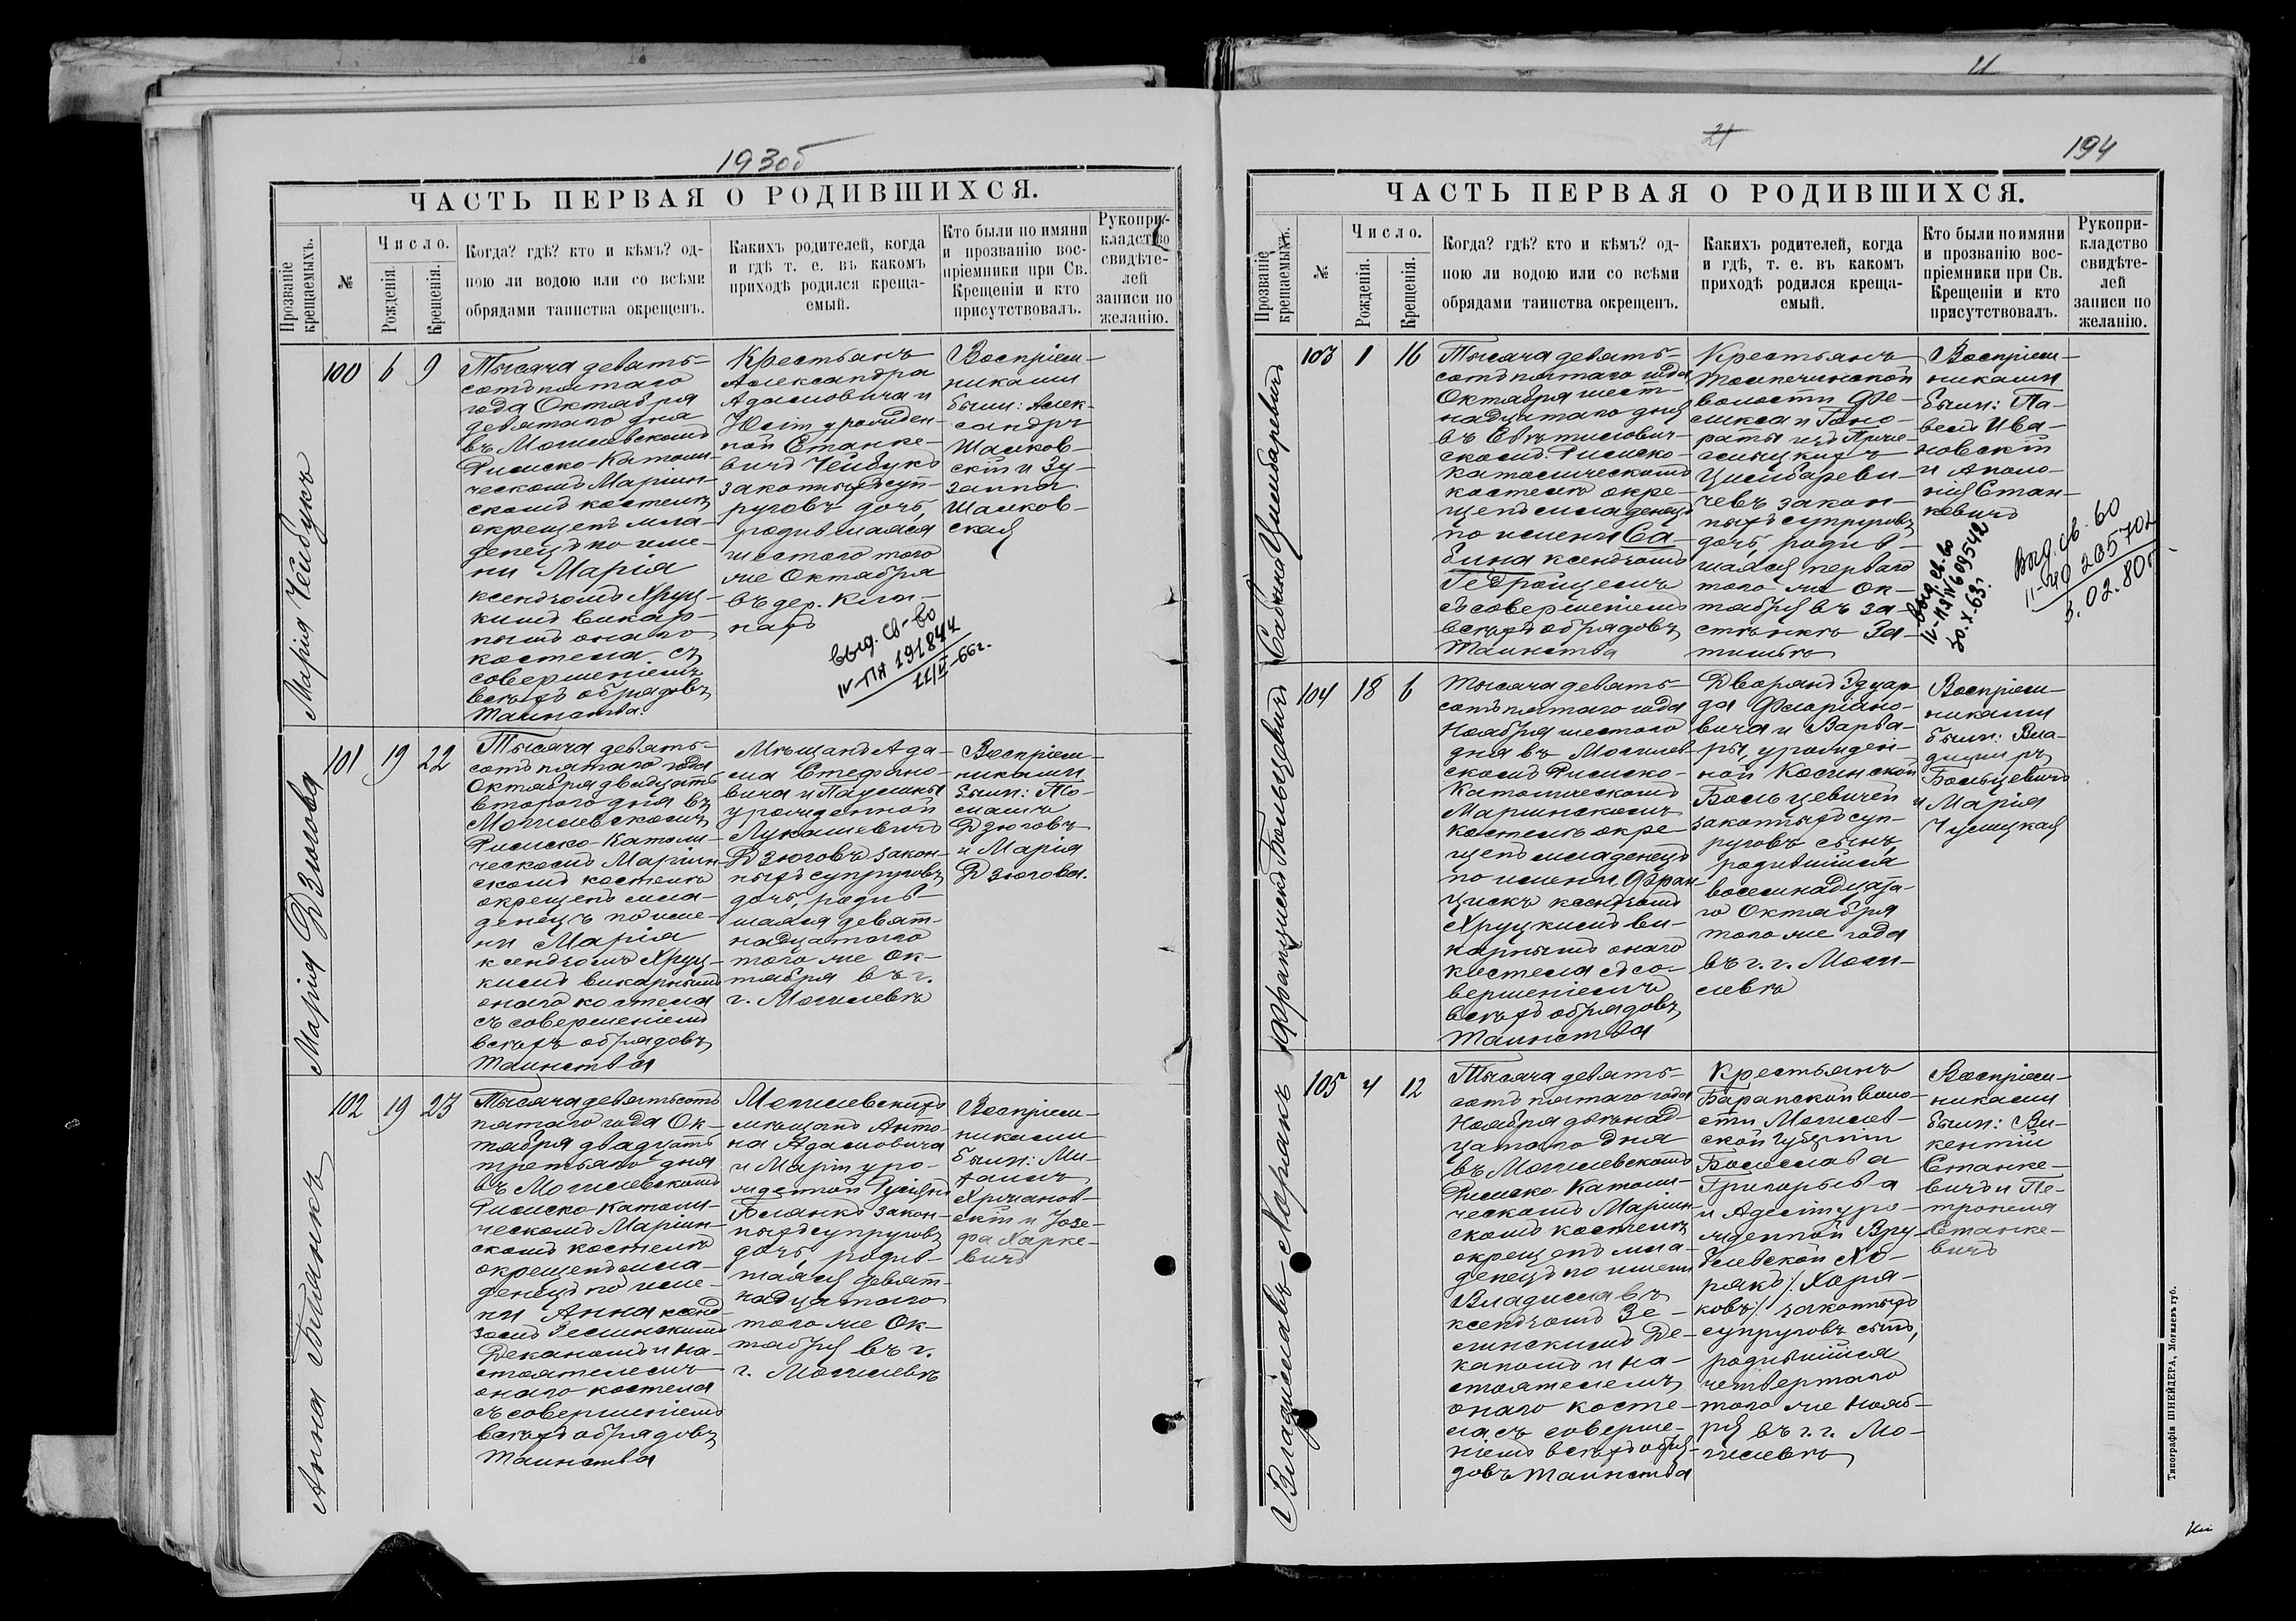 193об
ЧАСТЬ ПЕРВАЯ О РОДИВШИХСЯ.
Прозваніе крещаемыхъ.
№
Число.
Рожденія.
Крещенія.
Когда? гдѣ? кто и кѣмъ? од-
ною ли водою или со всѣми
обрядами таинства окрещенъ.
Какихъ родителей, когда
и гдѣ т. е. въ какомъ
приходѣ родился креща-
емый.
Кто были по имяни
и прозванію вос-
пріемники при Св.
Крещеніи и кто
присутствовалъ.
Рукопри-
кладство
свидѣте-
лей
записи по
желанію.
Марія Чейбукъ
100 6 9
Тысяча девять-
сотъ пятаго
года Октября
девятаго дня
въ Могилевскомъ
Римско-Католи-
ческомъ Маріин-
скомъ костелѣ
окрещенъ мла-
денецъ по име-
ни Марія
ксендзомъ Хруц-
кимъ викар-
нымъ онаго
костела съ
совершеніемъ
всѣхъ обрядовъ
Таинства.
Крестьянъ
Александра
Адамовича и
урожден-
ной Станке-
вичъ Чейбукъ
законныхъ суп-
руговъ дочь,
родившаяся
шестого того
же Октября
въ дер.
Воспріем-
никами
были: Алек-
сандръ
Машков-
скій и Зу-
занна
Машков-
ская
выд. св-во
IV-ПЯ 191844
66г.
Марія Дзюгова
101 19 22
Тысяча девять-
сотъ пятаго года
Октября двадцать
второго дня въ
Могилевскомъ
Римско-Католи-
ческомъ Маріин-
скомъ костелѣ
окрещенъ мла-
денецъ по име-
ни Марія
ксендзомъ Хруц-
кимъ викарнымъ
онаго костела
съ совершеніемъ
всѣхъ обрядовъ
Таинства
Мѣщанъ Ада-
ма Стефано-
вича и Паулины
урожденной
Лукашевичъ
Дзюговъ закон-
ныхъ супруговъ
дочь, родив-
шаяся девят-
надцатаго
того же Ок-
тября въ г.
г. Могилевѣ
Воспріем-
никами
были: То-
машъ
Дзюговъ
и Марія
Дзюгова.
Анна Блинкъ
102 19 23
Тысяча девятьсотъ
пятаго года Ок-
тября двадцать
третьяго дня
въ Могилевскомъ
Римско-Католи-
ческомъ Маріин-
скомъ костелѣ
окрещенъ мла-
денецъ по име-
ни Анна ксенд-
зомъ Зелинскимъ
Деканомъ и на-
стоятелемъ
онаго костела
съ совершеніемъ
всѣхъ обрядовъ
Таинства
Могилевскихъ
мѣщанъ Анто-
на Адамовича
и Маріи уро-
жденной
закон-
ныхъ супруговъ
дочь, родив-
шаяся девят-
надцатаго
того же Ок-
тября въ г.
г. Могилевѣ
Воспріем-
никами
были: Ми-
хаилъ
Хрчанов-
скій и Юзе-
фа Харке-
вичъ
11
21
194
ЧАСТЬ ПЕРВАЯ О РОДИВШИХСЯ.
Прозваніе крещаемыхъ.
№
Число.
Рожденія.
Крещенія.
Когда? гдѣ? кто и кѣмъ? од-
ною ли водою или со всѣми
обрядами таинства окрещенъ.
Какихъ родителей, когда
и гдѣ, т. е. въ какомъ
приходѣ родился креща-
емый.
Кто были по имяни
и прозванію вос-
пріемники при Св.
Крещеніи и кто
присутствовалъ.
Рукопри-
кладство
свидѣте-
лей
записи по
желанію.
Сабина Цимбаревичъ
103 1 16
Тысяча девять-
сотъ пятаго года
Октября шест-
надцатаго дня
въ Свѣтилович-
скомъ Римско-
католическомъ
костелѣ окре-
щенъ младенецъ
по имени Са-
бина ксендзомъ
Гедройцемъ
съ совершеніемъ
всѣхъ обрядовъ
Таинства
Крестьянъ
волости Фе-
ликса и Гоно-
раты изъ
Цимбареви-
чевъ закон-
ныхъ супруговъ
дочь, родив-
шаяся перваго
того же Ок-
тября въ за-
стѣнкѣ За-
Воспріем-
никами
были: Па-
велъ Ива-
новскій
и Аполо-
нія Стан-
кевичъ
выд. св. во
IV-ПЯ № 609542
30.X.63г.
Выд. св. во
II-ЯО 205702
5.02.80г.
Францискъ Больцевичъ
104 18 6
Тысяча девять-
сотъ пятаго года
Ноября шестого
дня въ Могилев-
скомъ Римско-
Католическомъ
Маріинскомъ
костелѣ окре-
щенъ младенецъ
по имени Фран-
цискъ ксендзомъ
Хруцкимъ ви-
карнымъ онаго
костела съ со-
вершеніемъ
всѣхъ обрядовъ
Таинства
Дворянъ Эдуар-
да Флоріано-
вича и Варва-
ры, урожден-
ной Косинской
Больцевичей
законныхъ суп-
руговъ сынъ,
родившійся
восемнадцата-
го Октября
того же года
въ г. г. Моги-
левѣ
Воспріем-
никами
были: Вла-
димиръ
Больцевичъ
и Марія
Чулицкая
Владиславъ Хорякъ
105 4 12
Тысяча девять-
сотъ пятаго года
Ноября двѣнад-
цатаго дня
въ Могилевскомъ
Римско-Католи-
ческомъ Маріин-
скомъ костелѣ
окрещенъ мла-
денецъ по имени
Владиславъ
ксендзомъ Зе-
линскимъ Де-
каномъ и на-
стоятелемъ
онаго косте-
ла съ соверше-
ніемъ всѣхъ обря-
довъ Таинства
Крестьянъ
Баранской воло-
сти Могилев-
ской губерніи
Болеслава
Григорьева
и Аделіи уро-
жденной Вру-
блевской Хо-
рякъ /Хоря-
ковъ/ законныхъ
супруговъ сынъ,
родившійся
четвертаго
того же Нояб-
ря въ г. г. Мо-
гилевѣ
Воспріем-
никами
были: Ви-
кентій
Станке-
вичъ и Пе-
тронеля
Станке-
вичъ
Типографія ШНЕЙДЕРА, Могилевъ губ.